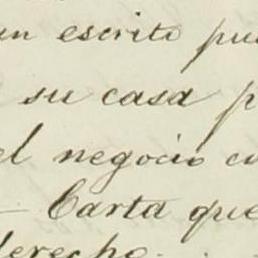 un escrito pu
su casa p
el negocio co
- Carta que
derecho.